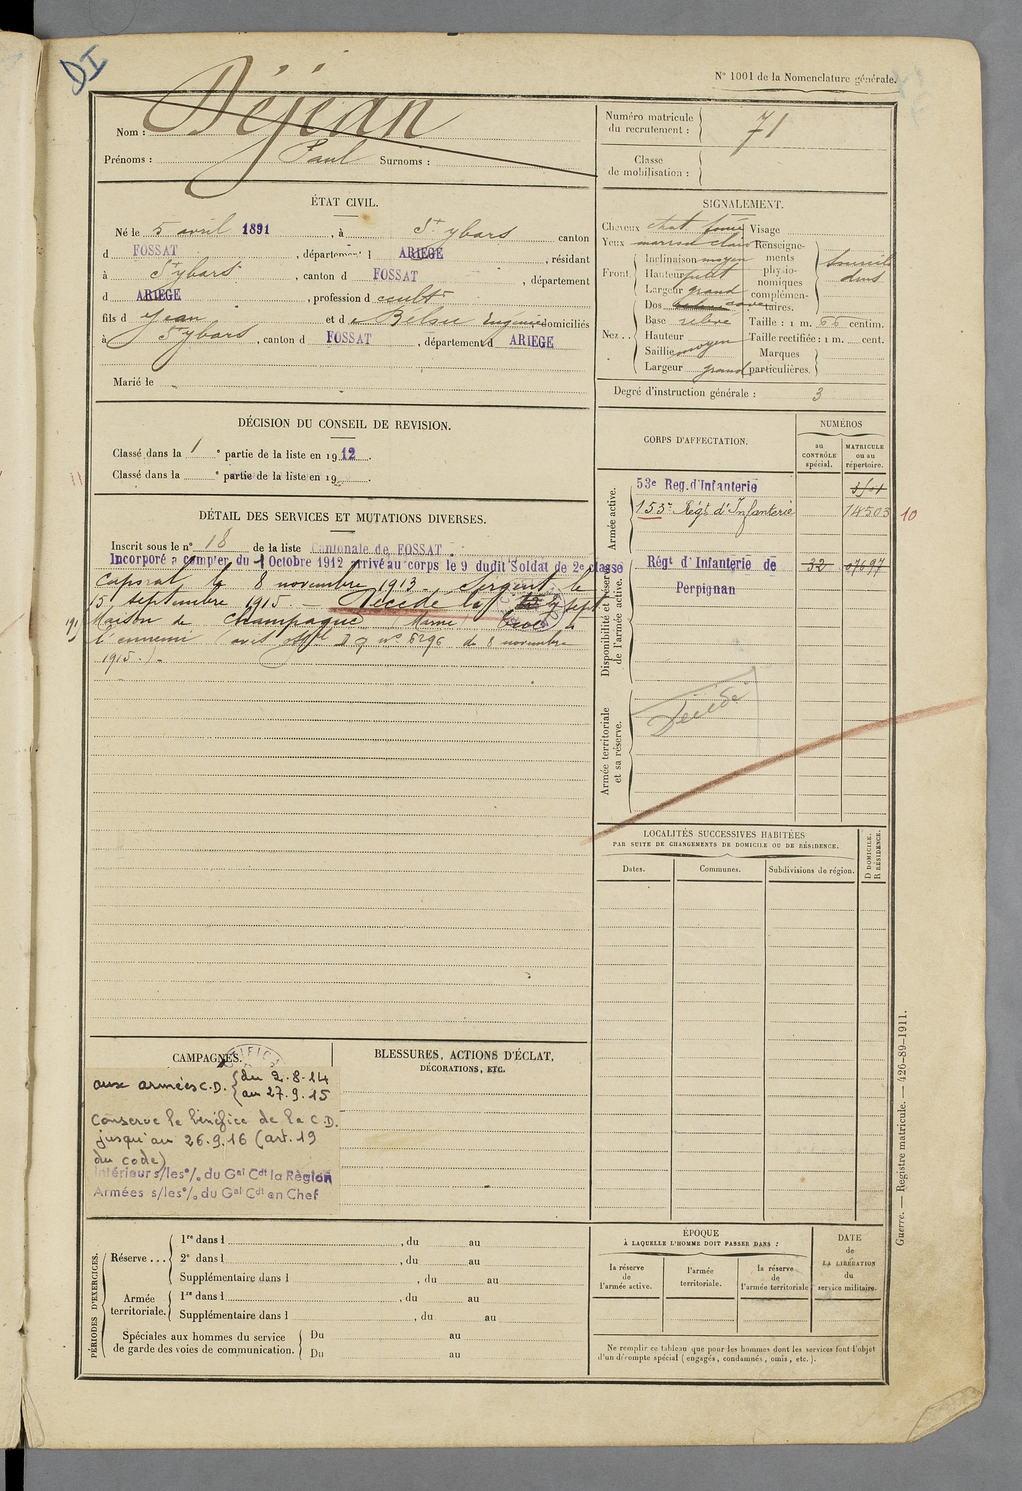 DI
N° 1001 de la Nomenclature générale.
Nom : Déjean
Prénoms : Paul Surnoms :
Numéro matricule du recrutement : 71
Classe de mobilisation :
ÉTAT CIVIL.
Né le 5 avril 1891, à St ybars canton
d FOSSAT, département d ARIEGE, résidant
à St ybars, canton d FOSSAT, département
d ARIEGE, profession d cultr
fils d Jean et d e Belsu Eugénie domiciliés
à St ybars, canton d FOSSAT, département d ARIEGE
Marié le
SIGNALEMENT.
Cheveux chat foncé Visage
Yeux marron clair Renseignements physionomiques complémentaires. Sourcils drus
Front. Inclinaison moyen
Hauteur petit
Largeur grand
Nez.. Dos cave
Base relevé Taille : 1 m. 66 centim.
Hauteur Taille rectifiée : 1 m. cent.
Saillie moyen Marques
Largeur grand particulières.
Degré d'instruction générale : 3
DÉCISION DU CONSEIL DE REVISION.
Classé dans la 1 e partie de la liste en 1912.
Classé dans la e partie de la liste en 19 .
DÉTAIL DES SERVICES ET MUTATIONS DIVERSES.
Inscrit sous le n° 18 de la liste Cantonale de FOSSAT.
Incorporé à compter du 1 Octobre 1912 arrivé au corps le 9 dudit Soldat de 2e classe
Caporal le 8 novembre 1913. Sergent le
15 septembre 1915. — Décédé le 27 sept
191 Maison de Champagne (Marne) tué à
l'ennemi (avis offel D 7 n° 6296 de 8 novembre
1915.).
CORPS D'AFFECTATION.
NUMÉROS
au CONTRÔLE spécial.
MATRICULE ou au répertoire.
Armée active.
53e Reg. d'Infanterie
155e Régt d'Infanterie 14503 10
Disponibilité et réserve de l'armée active.
Régt d'Infanterie de Perpignan 32 07697
Armée territoriale et sa réserve.
Décédé
LOCALITÉS SUCCESSIVES HABITÉES
PAR SUITE DE CHANGEMENTS DE DOMICILE OU DE RÉSIDENCE.
Dates. Communes. Subdivisions de région.
D DOMICILE.
R RÉSIDENCE.
CAMPAGNES.
aux armées C.D. du 2.8.14
au 27.9.15
Conserve le bénéfice de la C.D.
jusqu'au 26.9.16 (art. 19
du code)
Intérieur s/les°/. du Gal Cdt la Région
Armées s/les°/. du Gal Cdt en Chef
BLESSURES, ACTIONS D'ÉCLAT,
DÉCORATIONS, ETC.
PÉRIODES D'EXERCICES.
Réserve... 1re dans l , du au
2e dans l , du au
Supplémentaire dans l , du au
Armée territoriale. 1re dans l , du au
Supplémentaire dans l , du au
Spéciales aux hommes du service de garde des voies de communication. Du au
Du au
ÉPOQUE
À LAQUELLE L'HOMME DOIT PASSER DANS :
la réserve de l'armée active.
l'armée territoriale.
la réserve de l'armée territoriale
DATE de LA LIBÉRATION du service militaire.
Ne remplir ce tableau que pour les hommes dont les services font l'objet
d'un décompte spécial (engagés, condamnés, omis, etc.).
Guerre. — Registre matricule. — 426-89-1911.